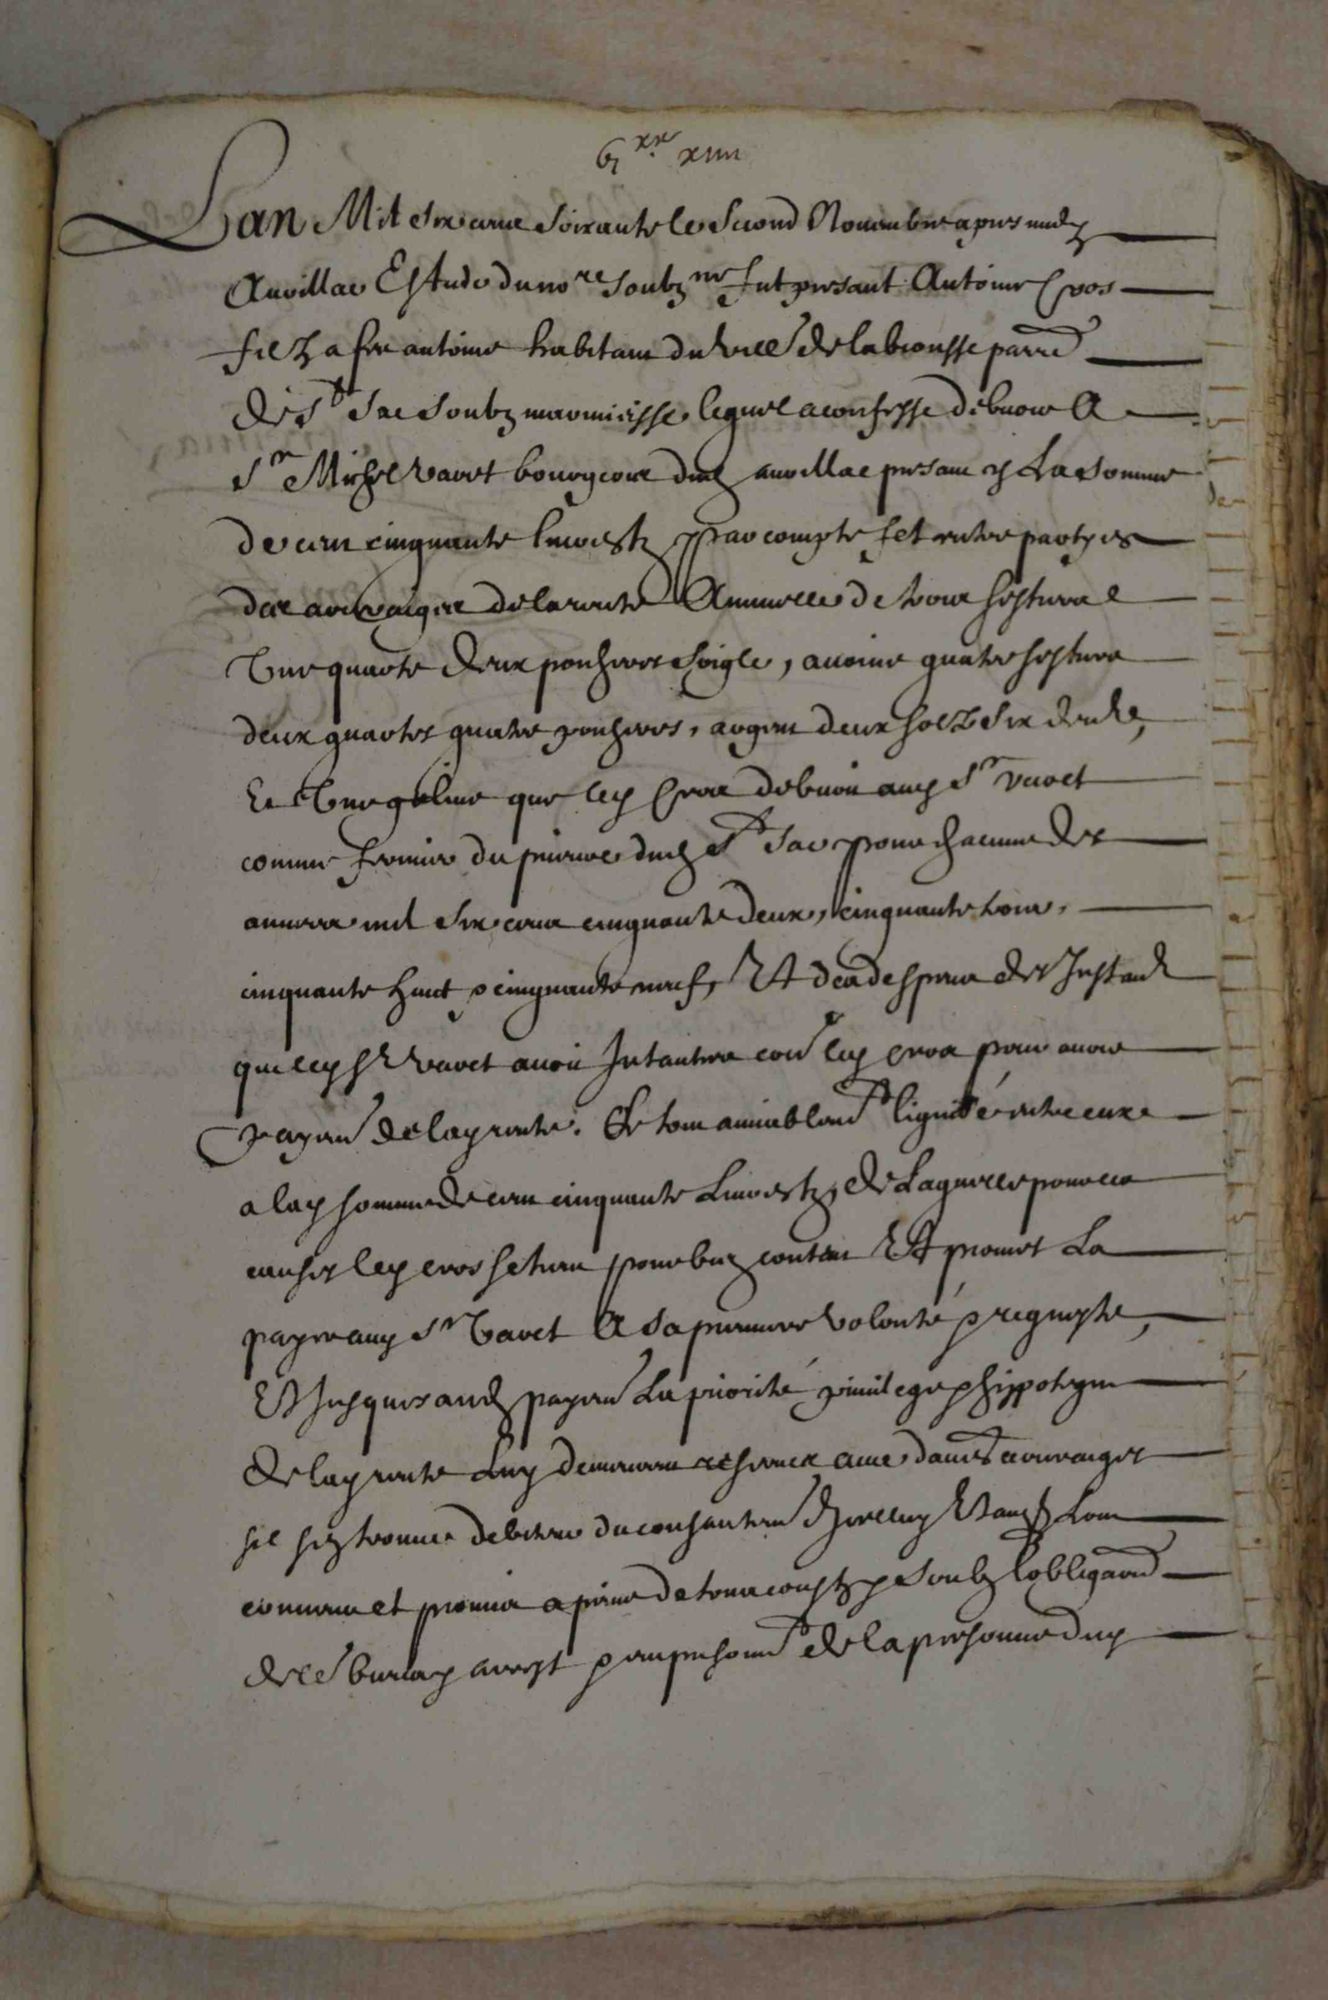 vi xx xiiii
Lan Mil six cens soixante le second Novembre apres midy
Auvillac Estude du no re soubz ne fut presant Antoine Cros
filz a feu antoine habitant du vill de labrousse parre
de st Sac soubz marmiesse lequel a confesse debvoir A
Sr Michel vavet bourgeois dud auvillac presant &c La somme
de cent cinquante livres tz par compte fet entre partyes
des arrerages de la rente Annuelle de trois sestiers
Une quarte deux ponhieres seigle, avoine quatre sestiers
deux quartes quatre ponhieres, argent deux solz six deniers,
Et Une geline que led Cros debvoit aud Sr vavet
comme fermier du prieure dud St Sac pour chacune des
annees mil six cens cinquante deux, cinquante trois,
cinquante huict & cinquante neuf, Et des despens des Instances
que led Sr vavet avoit Intantees con led cros pour avoir
payem de lad rente. Le tout amiablem liquidé entre eux
a lad somme de cent cinquante Livres tz, de Laquelle pour ces
causes led cros se tient pour bien contant Et promet La
payer aud Sr Vavet A sa premiere volonté & requeste,
Et Jusques aud payem La priorité privilege & hippoteque
de lad rente Luy demeurera reservee avec dautres arrerages
sil sen trouve debiteur du consantem dicelluy Et ainsy Lont
convenu et promis a peine de tous coustz & soubz lobligaon
de ses biens arrest & emprisonm de la personne dud